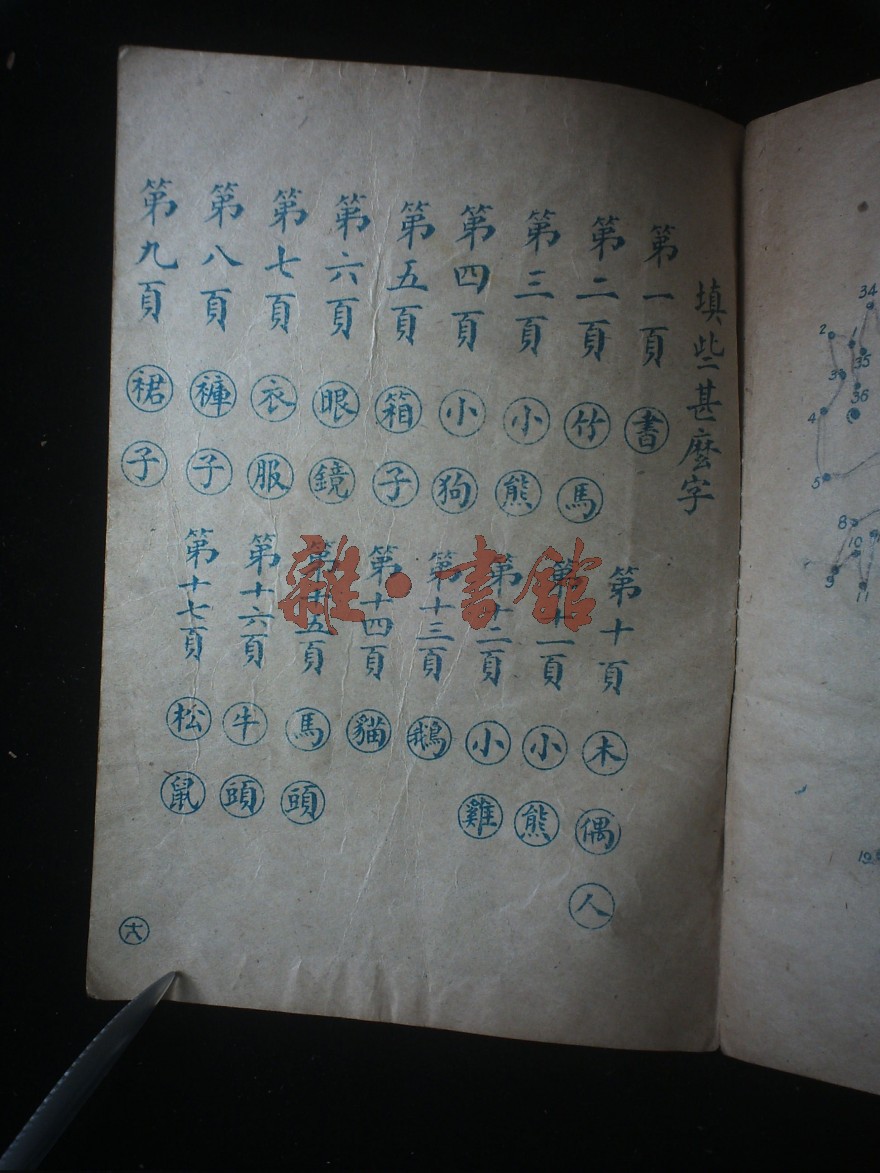 填些甚麼字
第一頁 書
第二頁 竹馬
第三頁 小熊
第四頁 小狗
第五頁 箱子
第六頁 眼鏡
第七頁 衣服
第八頁 褲子
第九頁 裙子
第十頁 木偶人
第十一頁 小熊
第十二頁 小雞
第十三頁 鵝
第十四頁 貓
第十五頁 馬頭
第十六頁 牛頭
第十七頁 松鼠
十八
雜·書館
34
2
1
35
3
36
4
5
8
10
9
11
19